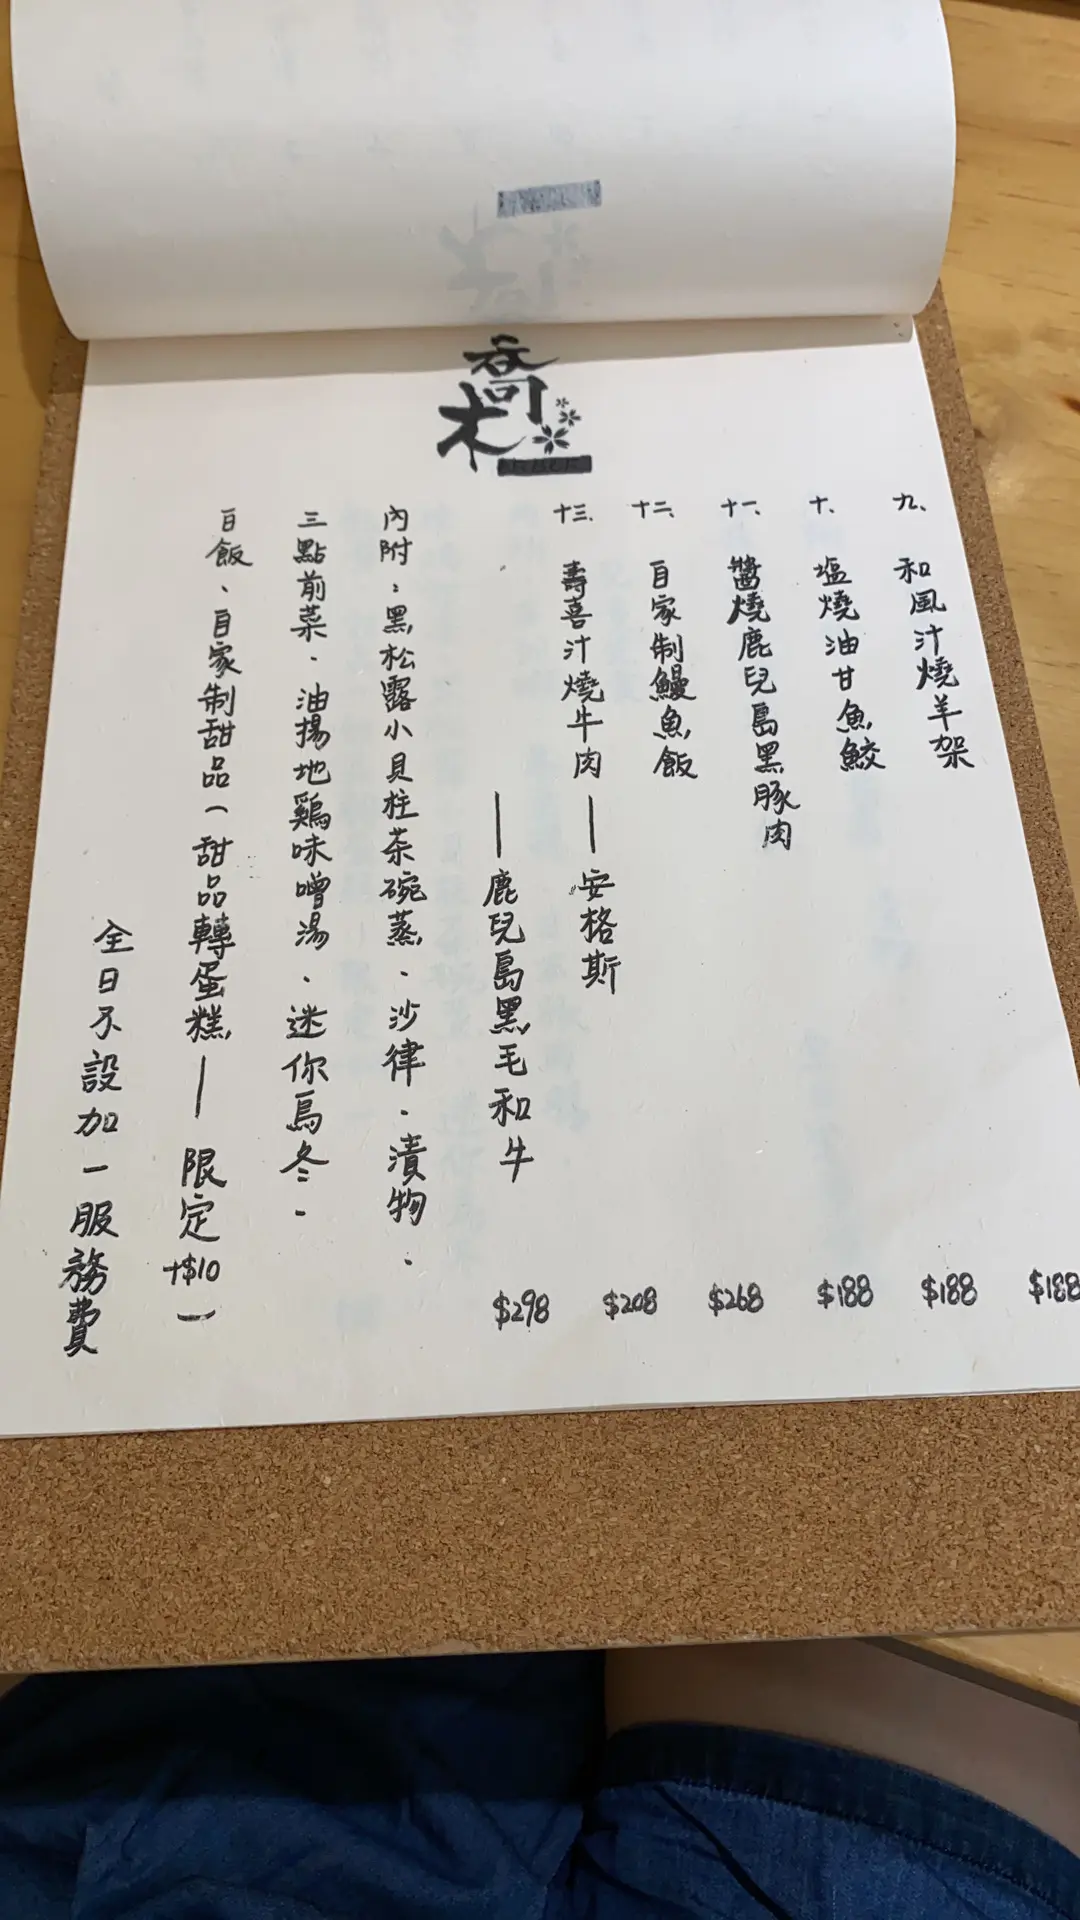 喬木
九、和風汁燒羊架 $188
十、塩燒油甘魚鮫 $188
十一、醬燒鹿兒島黑豚肉 $188
十二、自家制鰻魚飯 $268
十三、壽喜汁燒牛肉——安格斯 $208
——鹿兒島黑毛和牛 $298
內附：黑松露小貝柱茶碗蒸、沙律、漬物、
三點前菜、油揚地鷄味噌湯、迷你烏冬、
白飯、自家制甜品(甜品轉蛋糕——限定+$10)
全日不設加一服務費